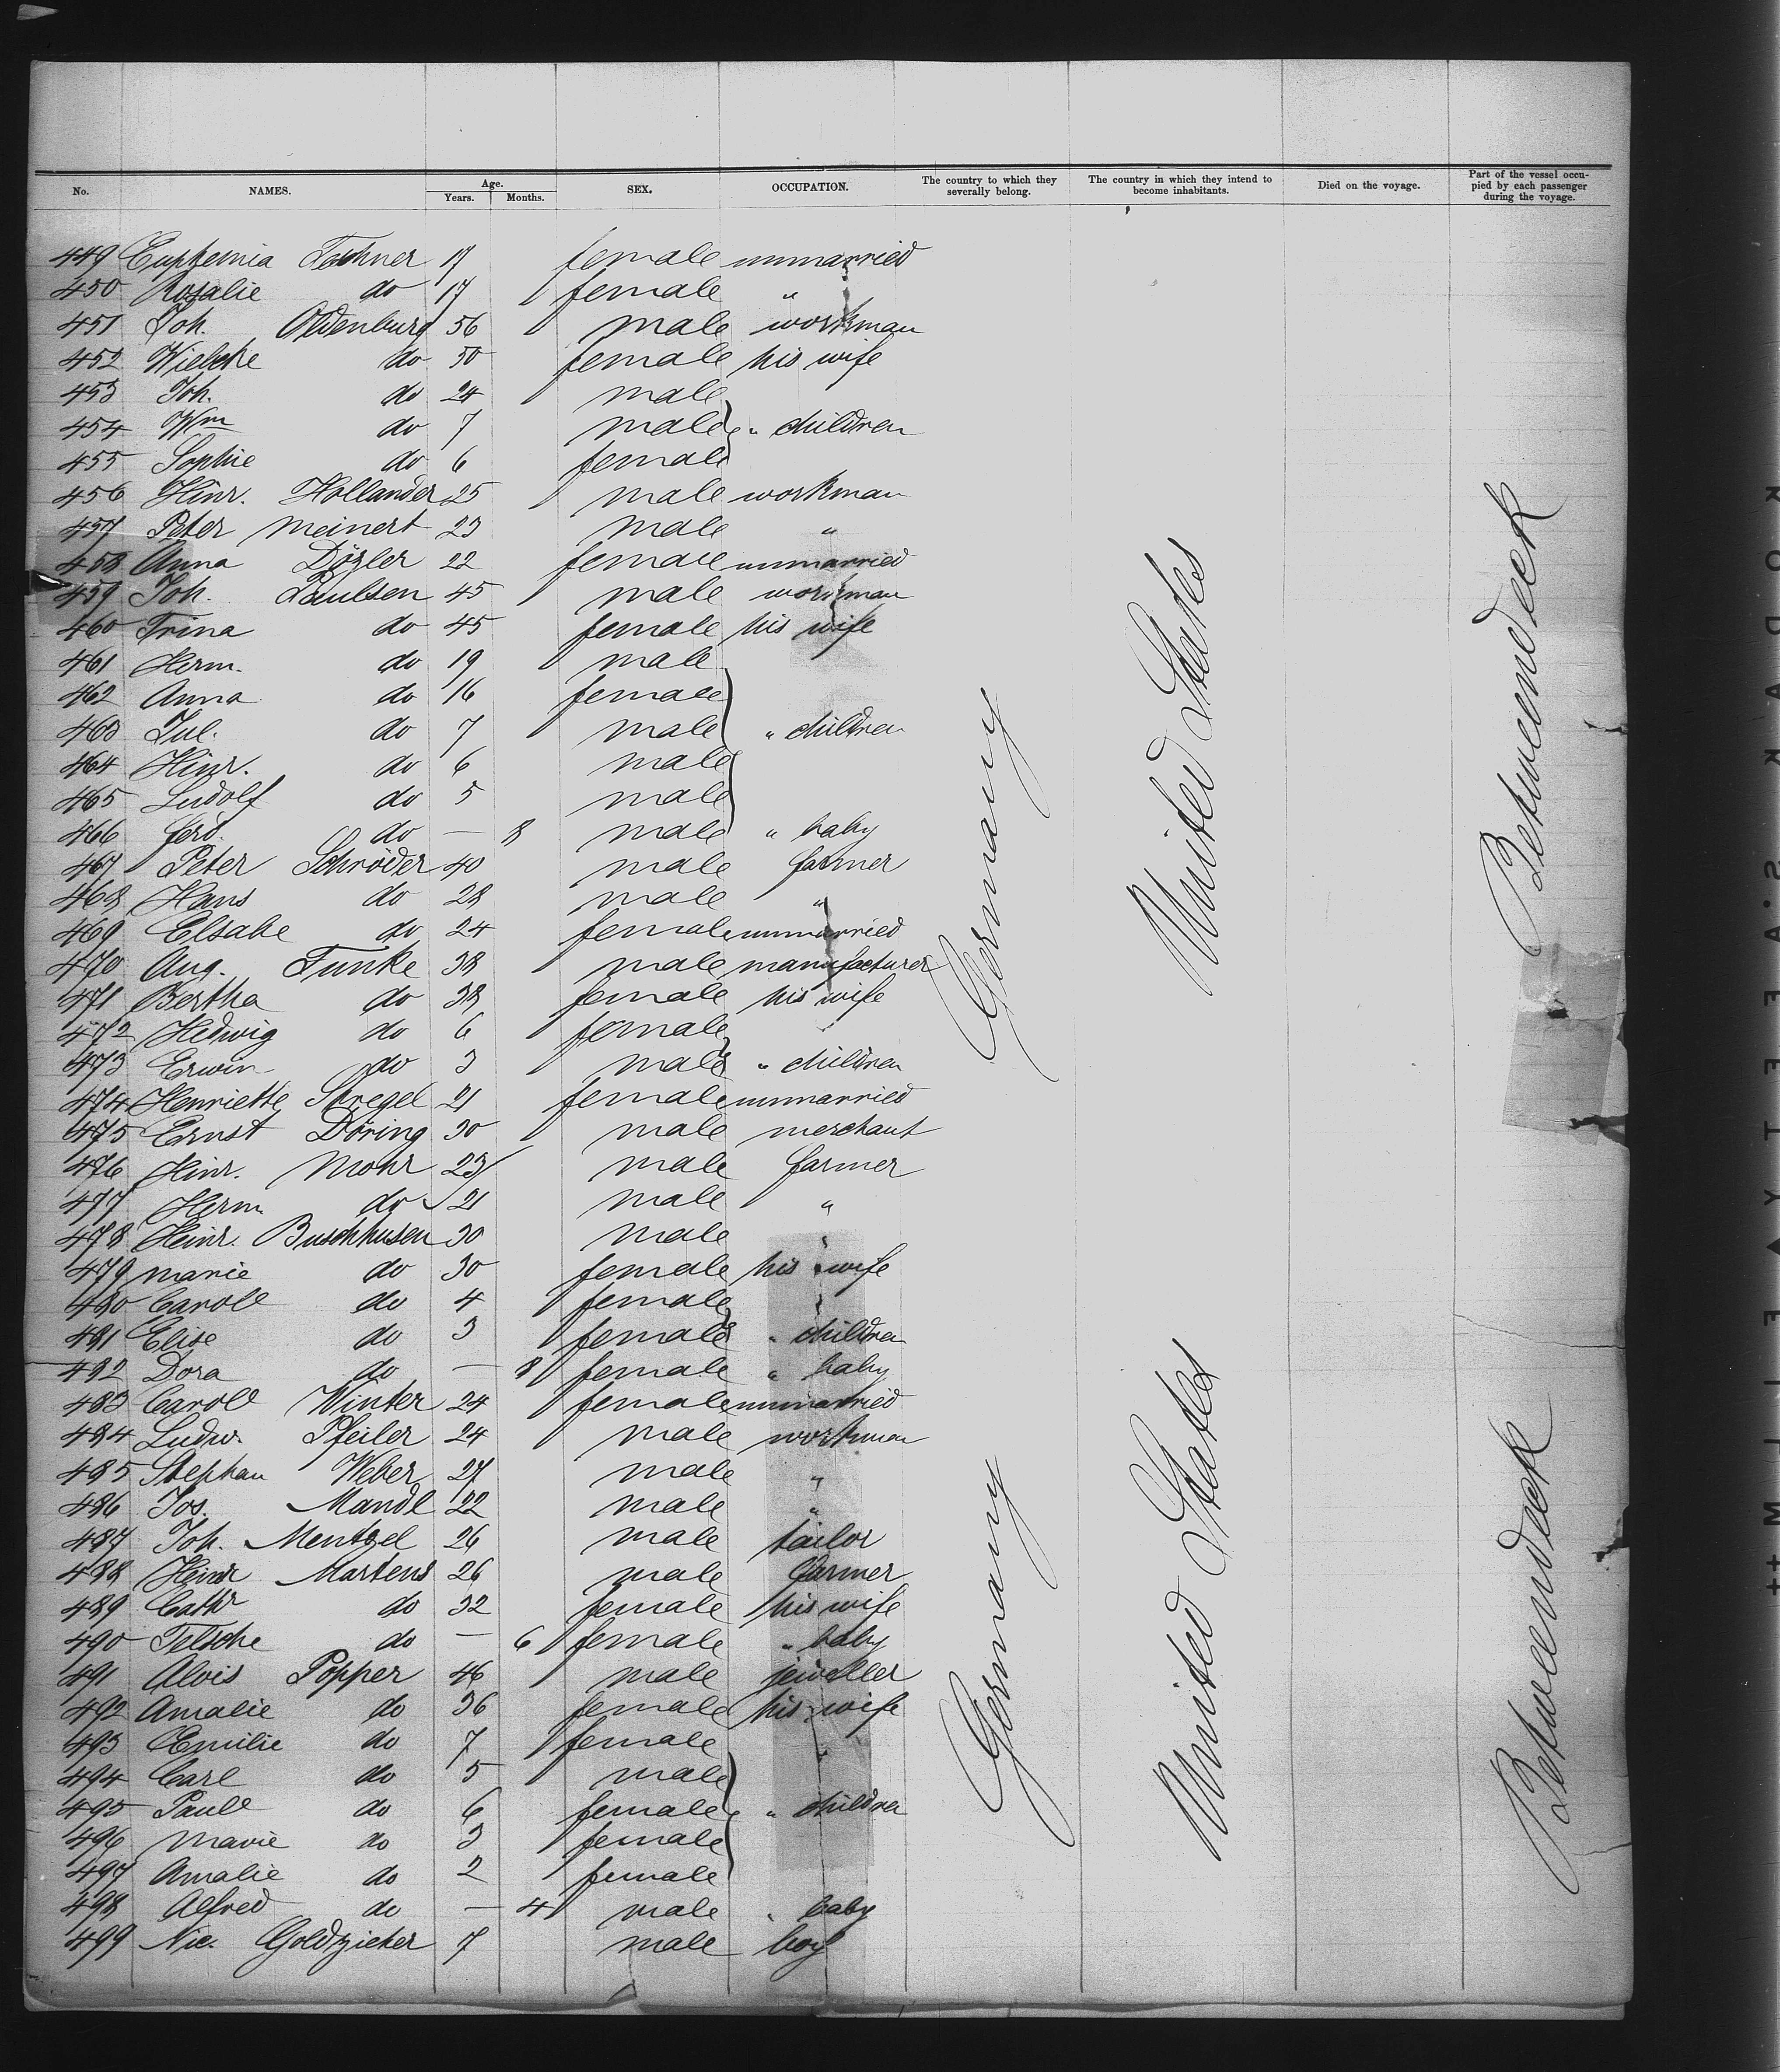 No. NAMES. Age. Years. Months. SEX. OCCUPATION. The country to which they severally belong. The country in which they intend to become inhabitants. Died on the voyage. Part of the vessel occupied by each passenger during the voyage.
449 Euphemia 19 female unmarried
450 Rosalie do 17 female "
451 Joh. Oldenburg 56 male workman
452 Wiebke do 50 female his wife
453 Joh. do 24 male
454 Wm do 7 male " children
455 Sophie do 6 female
456 Hinr. Hollander 25 male workman
457 Peter Meinert 23 male "
458 Anna 22 female unmarried
459 Joh. Paulsen 45 male workman
460 Trina do 45 female his wife
461 Herm. do 19 male
462 Anna do 16 female
463 Jul. do 7 male " children
464 Hinr. do 6 male
465 Ludolf do 5 male
466 Ferd. do — 8 male " baby
467 Peter Schröder 40 male farmer
468 Hans do 28 male "
469 Elsabe do 24 female unmarried
470 Aug. Funke 38 male manufacturer
471 Bertha do 38 female his wife
472 Hedwig do 6 female
473 Erwin do 3 male " children
474 Henriette Stregel 21 female unmarried
475 Ernst Döring 30 male merchant
476 Hinr. Mohr 23 male farmer
477 Herm do 21 male "
478 Heinr. Buschhusen 30 male "
479 Marie do 30 female his wife
480 Carole do 4 female
481 Elise do 3 female " children
482 Dora do — 8 female " baby
483 Carole Winter 24 female unmarried
484 Ludw. Pfeiler 24 male workman
485 Stephan Weber 27 male "
486 Jos. Mandl 22 male "
487 Joh. Mentzel 26 male tailor
488 Heinr Martens 26 male farmer
489 Cathr do 32 female his wife
490 Telsche do — 6 female " baby
491 Alois Popper 46 male jeweller
492 Amalie do 36 female his wife
493 Emilie do 7 female
494 Carl do 5 male
495 Paule do 6 female " children
496 Marie do 3 female
497 Amalie do 2 female
498 Alfred do — 4 male " baby
499 Nic. Goldzieher 7 male boy
Germany
United States
Betweendeck
Germany
United States
Betweendeck
KODAK S.A.F.E.T.Y